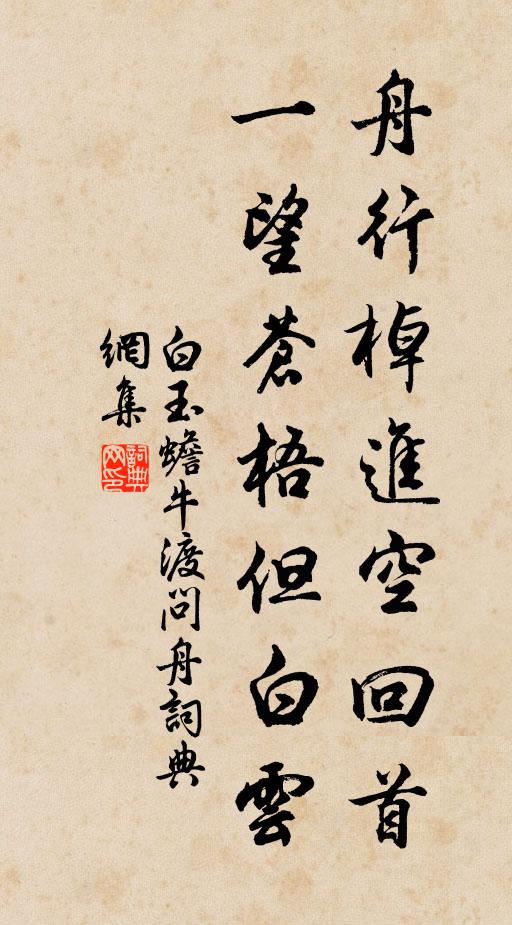 舟行棹進空回首
一望蒼梧但白雲
白玉蟾牛渡問舟詞典
網集
詞典網印